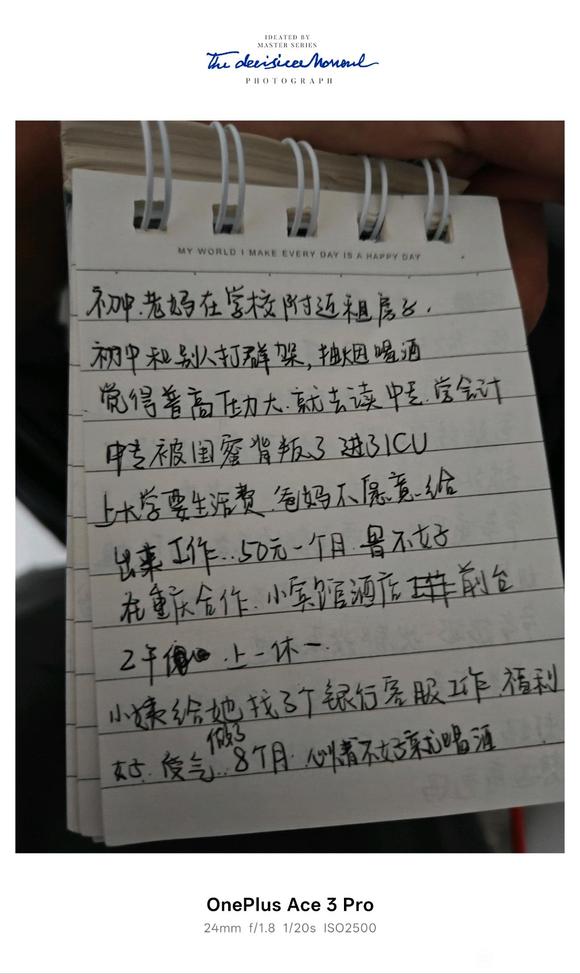 IDEATED BY
MASTER SERIES
The decisive Moment
PHOTOGRAPH
MY WORLD I MAKE EVERY DAY IS A HAPPY DAY
初中.老妈在学校附近租房子.
初中和别人打群架,抽烟喝酒
觉得普高压力大.就去读中专.学会计
中专被闺蜜背叛了 进了ICU
上大学要生活费.爸妈不愿意给
出来工作..50元一个月.景不太好
在重庆合作.小宾馆酒店 工作 前台
2年 .上一休一.
小姨给她找了个银行客服工作.福利
做了
好.受气..8个月.心情不好就喝酒
OnePlus Ace 3 Pro
24mm f/1.8 1/20s ISO2500